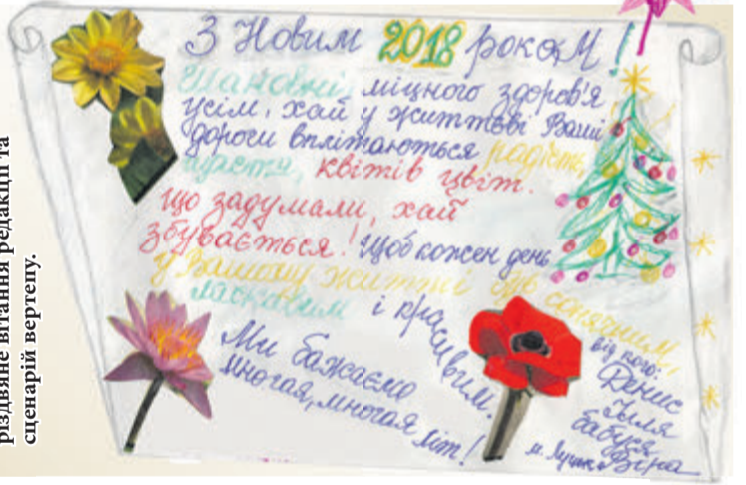 різдвяне вітання редакції та
сценарій вертепу.
З Новим 2018 роком!
Шановні, міцного здоров'я
усім, хай у життєві Ваші
дороги вплітаються радість,
щастя, квітів цвіт.
Що задумали, хай
збувається! Щоб кожен день
у Вашому житті був сонячним,
ласкавим і красивим.
Ми бажаємо
многая, многая літ!
від кого:
Денис
Ілля
бабуся
м. Луцьк Віра